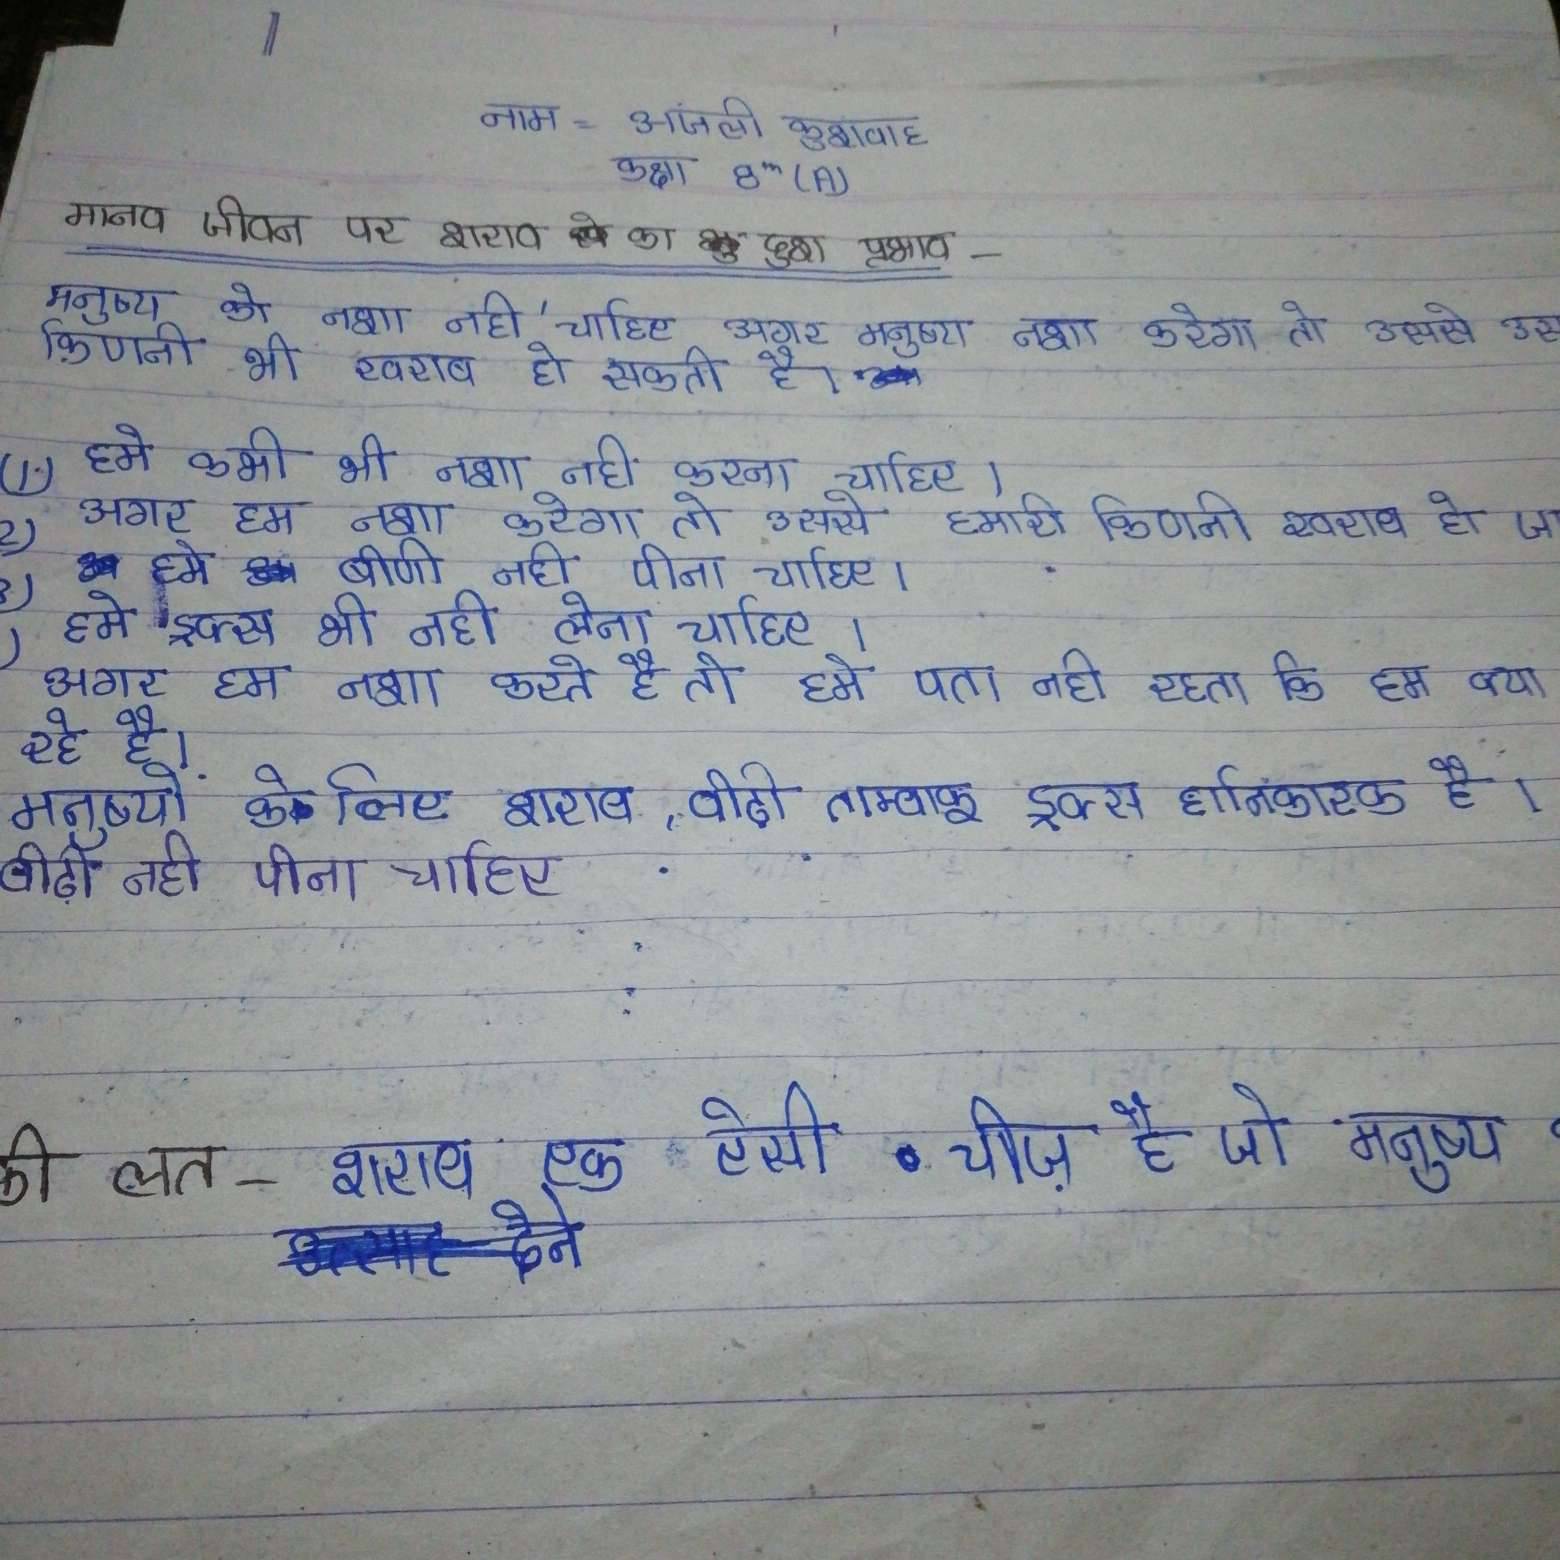 नाम = अंजली कुशवाह
कक्षा 8th (A)
मानव जीवन पर शराब का दुश प्रभाव -
मनुष्य को नशा नही चाहिए अगर मनुष्य नशा करेगा तो उससे उस
किणनी भी खराब हो सकती है।
(1) हमे कभी भी नशा नही करना चाहिए।
2) अगर हम नशा करेगा तो उससे हमारी किणनी खराब हो जा
3) हमे बीणी नही पीना चाहिए।
) हमे ड्रक्स भी नही लेना चाहिए।
अगर हम नशा करते है तो हमे पता नही रहता कि हम क्या
रहे है।
मनुष्यों के लिए शराब, बीढ़ी ताम्बाकू ड्रक्स हानिकारक है।
बीढ़ी नही पीना चाहिए
की लत - शराब एक ऐसी चीज़ है जो मनुष्य
देने